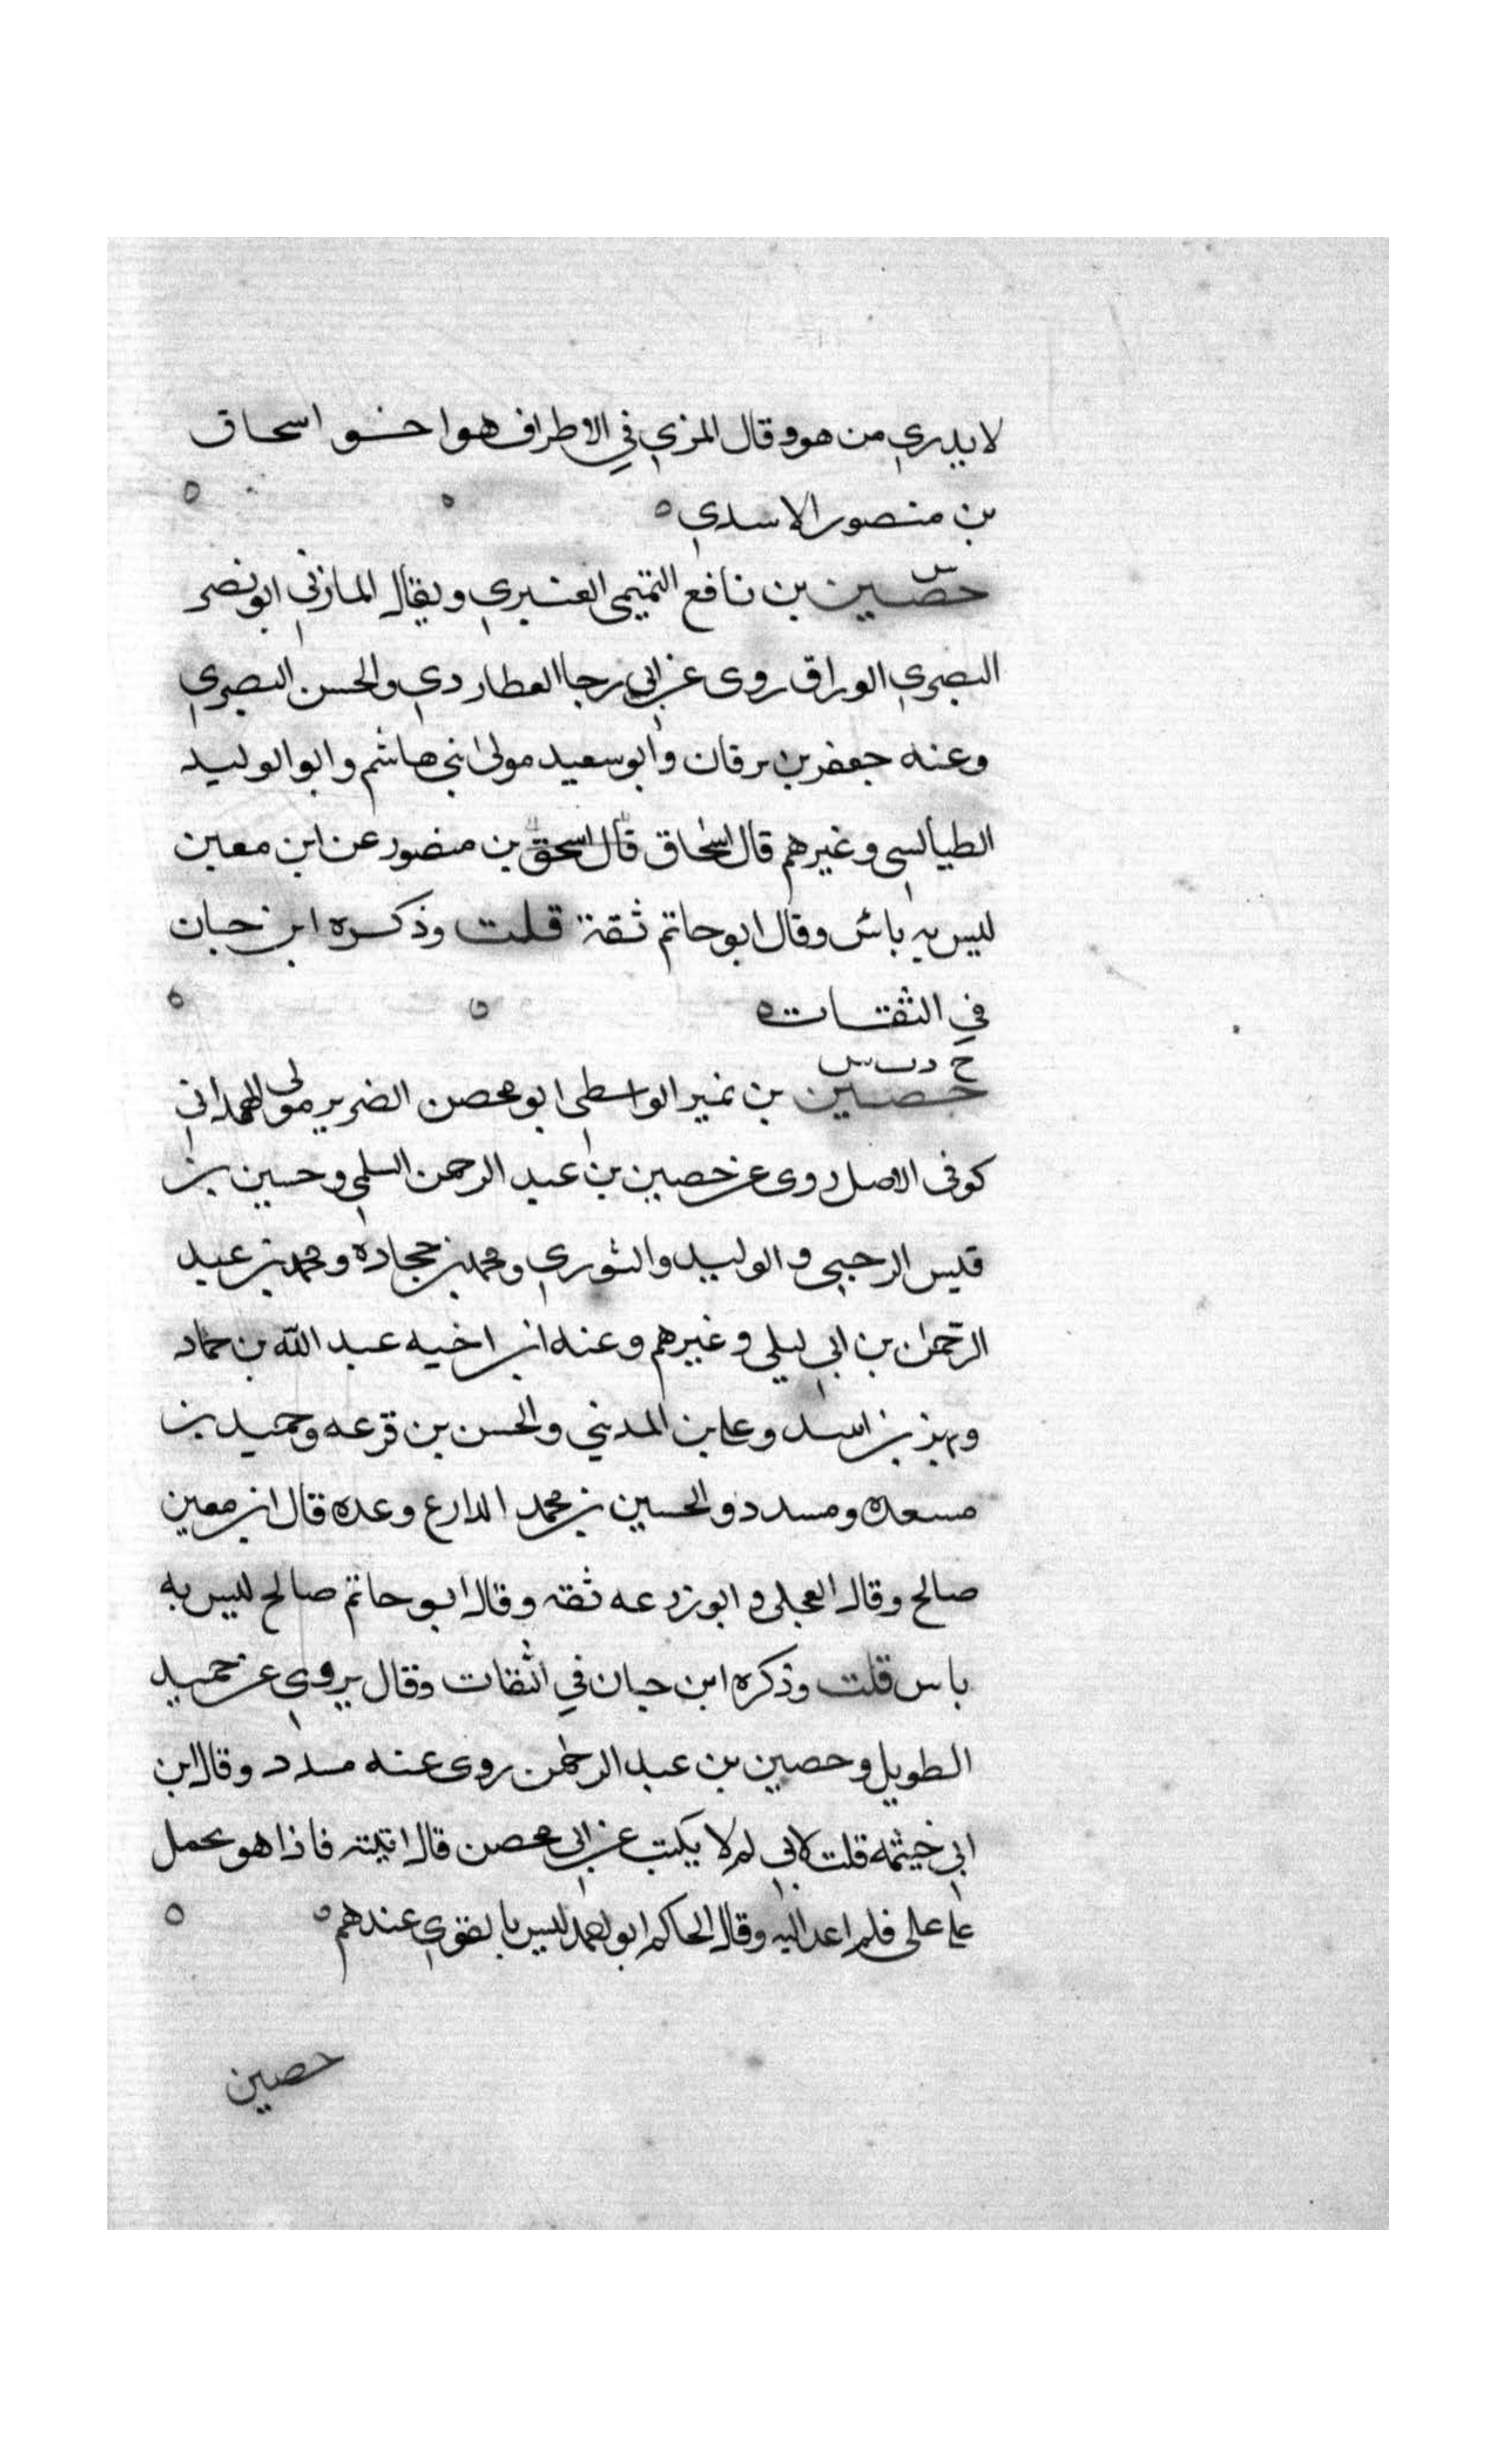 لا يدري من هو وقال المزي في الاطراف هو اخو اسحاق
بن منصور الاسدي ه
س
حصين بن نافع التميمي العنبري ويقال المازني ابو نصر
البصري الوراق روى عن ابي رجا العطاردي والحسن البصري
وعنه جعفر بن برقان وابو سعيد مولى بني هاشم وابو الوليد
الطيالسي وغيرهم قال اسحاق قال اسحق بن منصور عن ابن معين
ليس به بأس وقال ابو حاتم ثقة قلت وذكره ابن حبان
في الثقات ه
خ د ت س
حصين بن نمير الواسطي ابو محصن الضرير مولى الهمداني
كوفى الاصل روى عن حصين بن عبد الرحمن السلمي وحسين بن
قيس الرحبي و الوليد والثوري ومحمد بن حجادة ومحمد بن عبد
الرحمن بن ابي ليلي وغيرهم وعنه ابن اخيه عبد الله بن حماد
وبهز بن اسد وعلي بن المديني والحسن بن قزعه وحميد بن
مسعده ومسدد والحسين بن محمد الدارع وعده قال ابن معين
صالح وقال العجلى و ابو زرعه ثقه وقال ابو حاتم صالح ليس به
باس قلت وذكره ابن حبان في الثقات وقال يروي عن حميد
الطويل وحصين بن عبد الرحمن روى عنه مسدد وقال ابن
ابي خيثمه قلت لابي لم لا يكتب عن ابي محصن قال اتيته فاذا هو يحمل
على على فلم اعد اليه وقال الحاكم ابو احمد ليس بالقوي عندهم ه
حصين